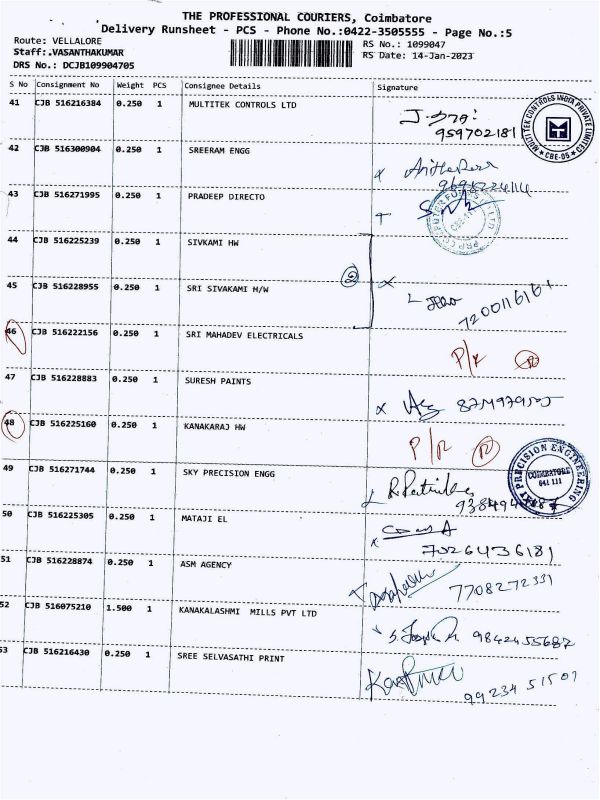 THE PROFESSIONAL COURIERS, Coimbatore
Delivery Runsheet - PCS - Phone No.:0422-3505555 - Page No.:5
Route: VELLALORE
RS No.: 1099047
Staff:.VASANTHAKUMAR
RS Date: 14-Jan-2023
DRS No.: DCJB109904705
S No Consignment No Weight PCS Consignee Details Signature
41 CJB 516216384 0.250 1 MULTITEK CONTROLS LTD
959702181
MULTITEK CONTROLS INDIA PRIVATE LIMITED
CBE-05
42 CJB 516300904 0.250 1 SREERAM ENGG
43 CJB 516271995 0.250 1 PRADEEP DIRECTO
44 CJB 516225239 0.250 1 SIVKAMI HW
2
45 CJB 516228955 0.250 1 SRI SIVAKAMI H/W
46 CJB 516222156 0.250 1 SRI MAHADEV ELECTRICALS
P/R R
47 CJB 516228883 0.250 1 SURESH PAINTS
48 CJB 516225160 0.250 1 KANAKARAJ HW
P/R R
49 CJB 516271744 0.250 1 SKY PRECISION ENGG
SKY PRECISION ENGINEERING
COIMBATORE
641 111
50 CJB 516225305 0.250 1 MATAJI EL
7026436181
51 CJB 516228874 0.250 1 ASM AGENCY
7708272331
52 CJB 516075210 1.500 1 KANAKALASHMI MILLS PVT LTD
9842455687
53 CJB 516216430 0.250 1 SREE SELVASATHI PRINT
99234 51501